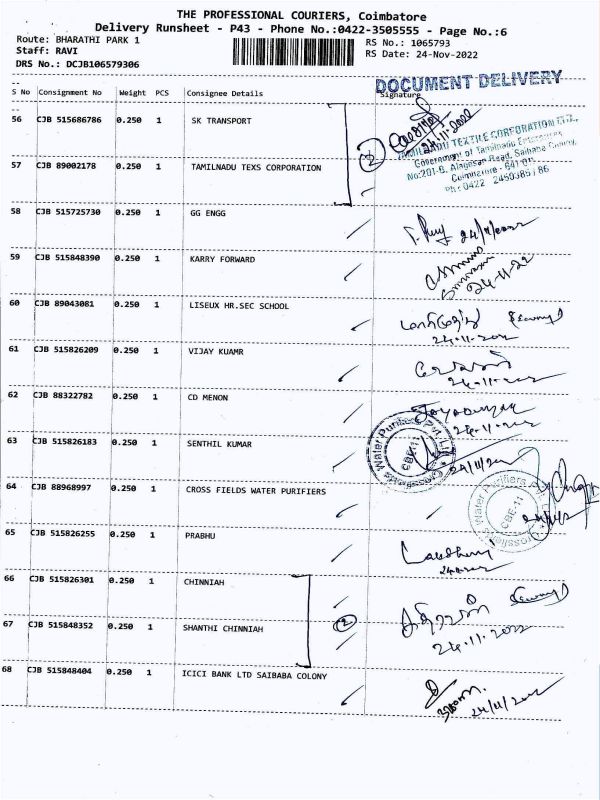 THE PROFESSIONAL COURIERS, Coimbatore
Delivery Runsheet - P43 - Phone No.:0422-3505555 - Page No.:6
Route: BHARATHI PARK 1 RS No.: 1065793
Staff: RAVI RS Date: 24-Nov-2022
DRS No.: DCJB106579306
DOCUMENT DELIVERY
S No Consignment No Weight PCS Consignee Details Signature
56 CJB 515686786 0.250 1 SK TRANSPORT
24.11.2022
2
TAMILNADU TEXTILE CORPORATION LTD.,
Government of Tamilnadu Enterprises
No:201-B, Alagesan Road, Saibaba Colony,
Coimbatore - 641 011.
57 CJB 89002178 0.250 1 TAMILNADU TEXS CORPORATION
58 CJB 515725730 0.250 1 GG ENGG
59 CJB 515848390 0.250 1 KARRY FORWARD
24-11-22
60 CJB 89043081 0.250 1 LISEUX HR.SEC SCHOOL
61 CJB 515826209 0.250 1 VIJAY KUAMR
62 CJB 88322782 0.250 1 CD MENON
63 CJB 515826183 0.250 1 SENTHIL KUMAR
Crossfields Water Purifiers Pvt. Ltd
CBE-11
64 CJB 88968997 0.250 1 CROSS FIELDS WATER PURIFIERS
Crossfields Water Purifiers
CBE-11
65 CJB 515826255 0.250 1 PRABHU
66 CJB 515826301 0.250 1 CHINNIAH
67 CJB 515848352 0.250 1 SHANTHI CHINNIAH
2
24.11.2022
68 CJB 515848404 0.250 1 ICICI BANK LTD SAIBABA COLONY